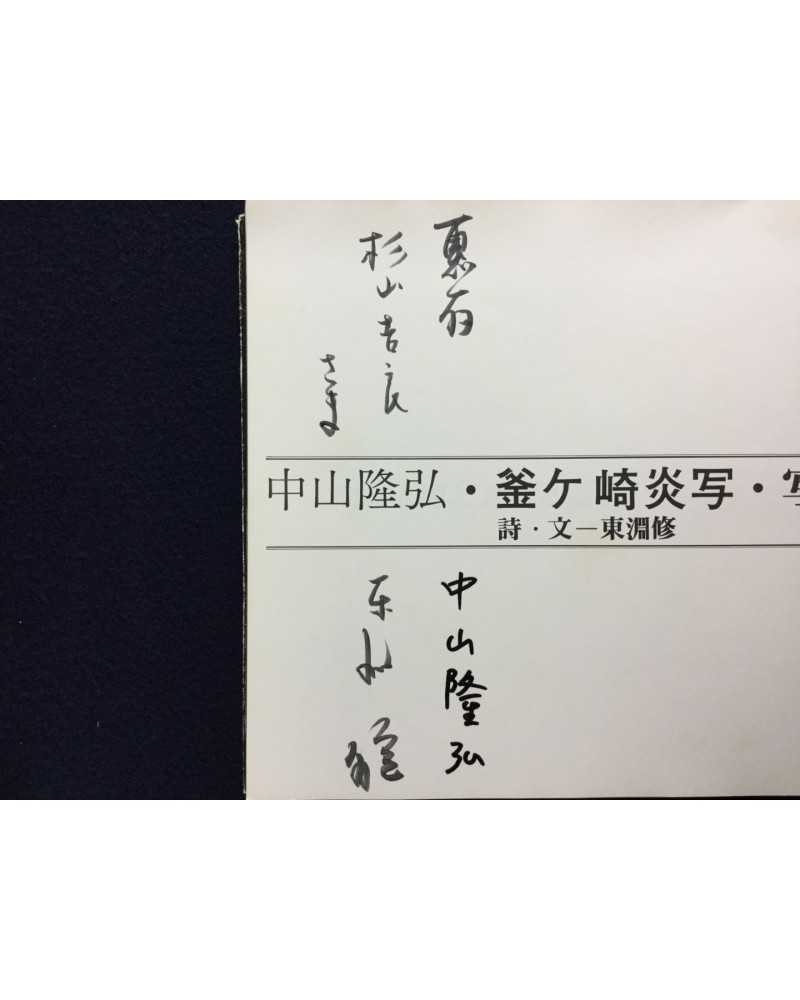 惠存
杉山吉良
さま
中山隆弘・釜ケ崎炎写・写
詩・文―東淵修
中山隆弘